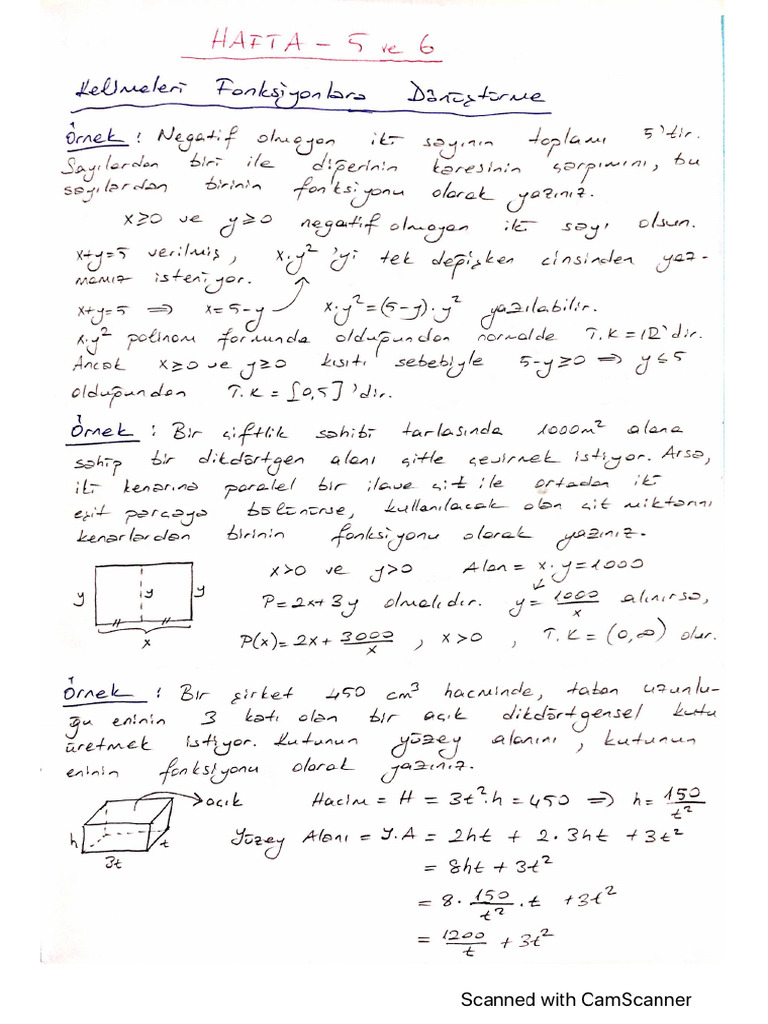 HAFTA - 5 ve 6
Kelimeleri Fonksiyonlara Dönüştürme
Örnek : Negatif olmayan iki sayının toplamı 5'tir.
Sayılardan biri ile diğerinin karesinin çarpımını, bu
sayılardan birinin fonksiyonu olarak yazınız.
x≥0 ve y≥0 negatif olmayan iki sayı olsun.
x+y=5 verilmiş, x.y² 'yi tek değişken cinsinden yaz-
mamız isteniyor.
x+y=5 ⇒ x=5-y x.y²=(5-y).y² yazılabilir.
x.y² polinom formunda olduğundan normalde T.K=ℝ'dir.
Ancak x≥0 ve y≥0 kısıtı sebebiyle 5-y≥0 ⇒ y≤5
olduğundan T.K = [0,5] 'dir.
Örnek : Bir çiftlik sahibi tarlasında 1000m² alana
sahip bir dikdörtgen alanı çitle çevirmek istiyor. Arsa,
iki kenarına paralel bir ilave çit ile ortadan iki
eşit parçaya bölünürse, kullanılacak olan çit miktarını
kenarlardan birinin fonksiyonu olarak yazınız.
x>0 ve y>0 Alan = x.y=1000
y y y P=2x+3y olmalıdır. y= 1000/x alınırsa,
x P(x)=2x+ 3000/x , x>0 , T.K = (0,∞) olur.
Örnek : Bir şirket 450 cm³ hacminde, taban uzunlu-
ğu eninin 3 katı olan bir açık dikdörtgensel kutu
üretmek istiyor. Kutunun yüzey alanını, kutunun
eninin fonksiyonu olarak yazınız.
açık Hacim = H = 3t².h = 450 ⇒ h= 150/t²
h t 3t Yüzey Alanı = Y.A = 2ht + 2.3ht +3t²
= 8ht + 3t²
= 8. 150/t² .t +3t²
= 1200/t + 3t²
Scanned with CamScanner